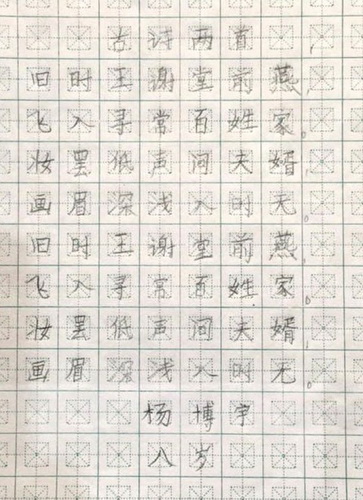 古诗两首
旧时王谢堂前燕,
飞入寻常百姓家。
妆罢低声问夫婿,
画眉深浅入时无。
旧时王谢堂前燕,
飞入寻常百姓家。
妆罢低声问夫婿,
画眉深浅入时无。
杨博宇
八岁